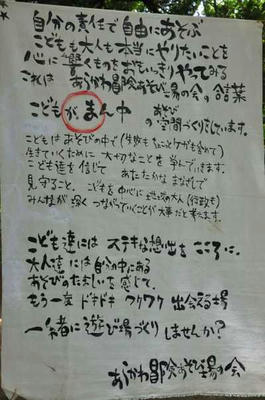 自分の責任で自由にあそぶ
こどもも大人も本当にやりたいことを
心に響くものをおもいっきりやってみる
これは あらかわ冒険あそび場の会の合言葉
こどもがまん中 あそび
の空間づくりしています。
こどもはあそびの中で(失敗もちょこっとケガも含めて)
生きていくために大切なことを学んでいきます。
こども達を信じて あたたかなまなざしで
見守ること。こどもを中心に地域の大人(行政も)
みんなが深くつながっていくことが大事だと考えます。
こども達には ステキな想い出を こころに。
大人達には自分の中にある
あそびのたましいを感じて。
もう一度 ドキドキ ワクワク 出会える場
一緒に遊び場づくりしませんか?
あらかわ冒険あそび場の会